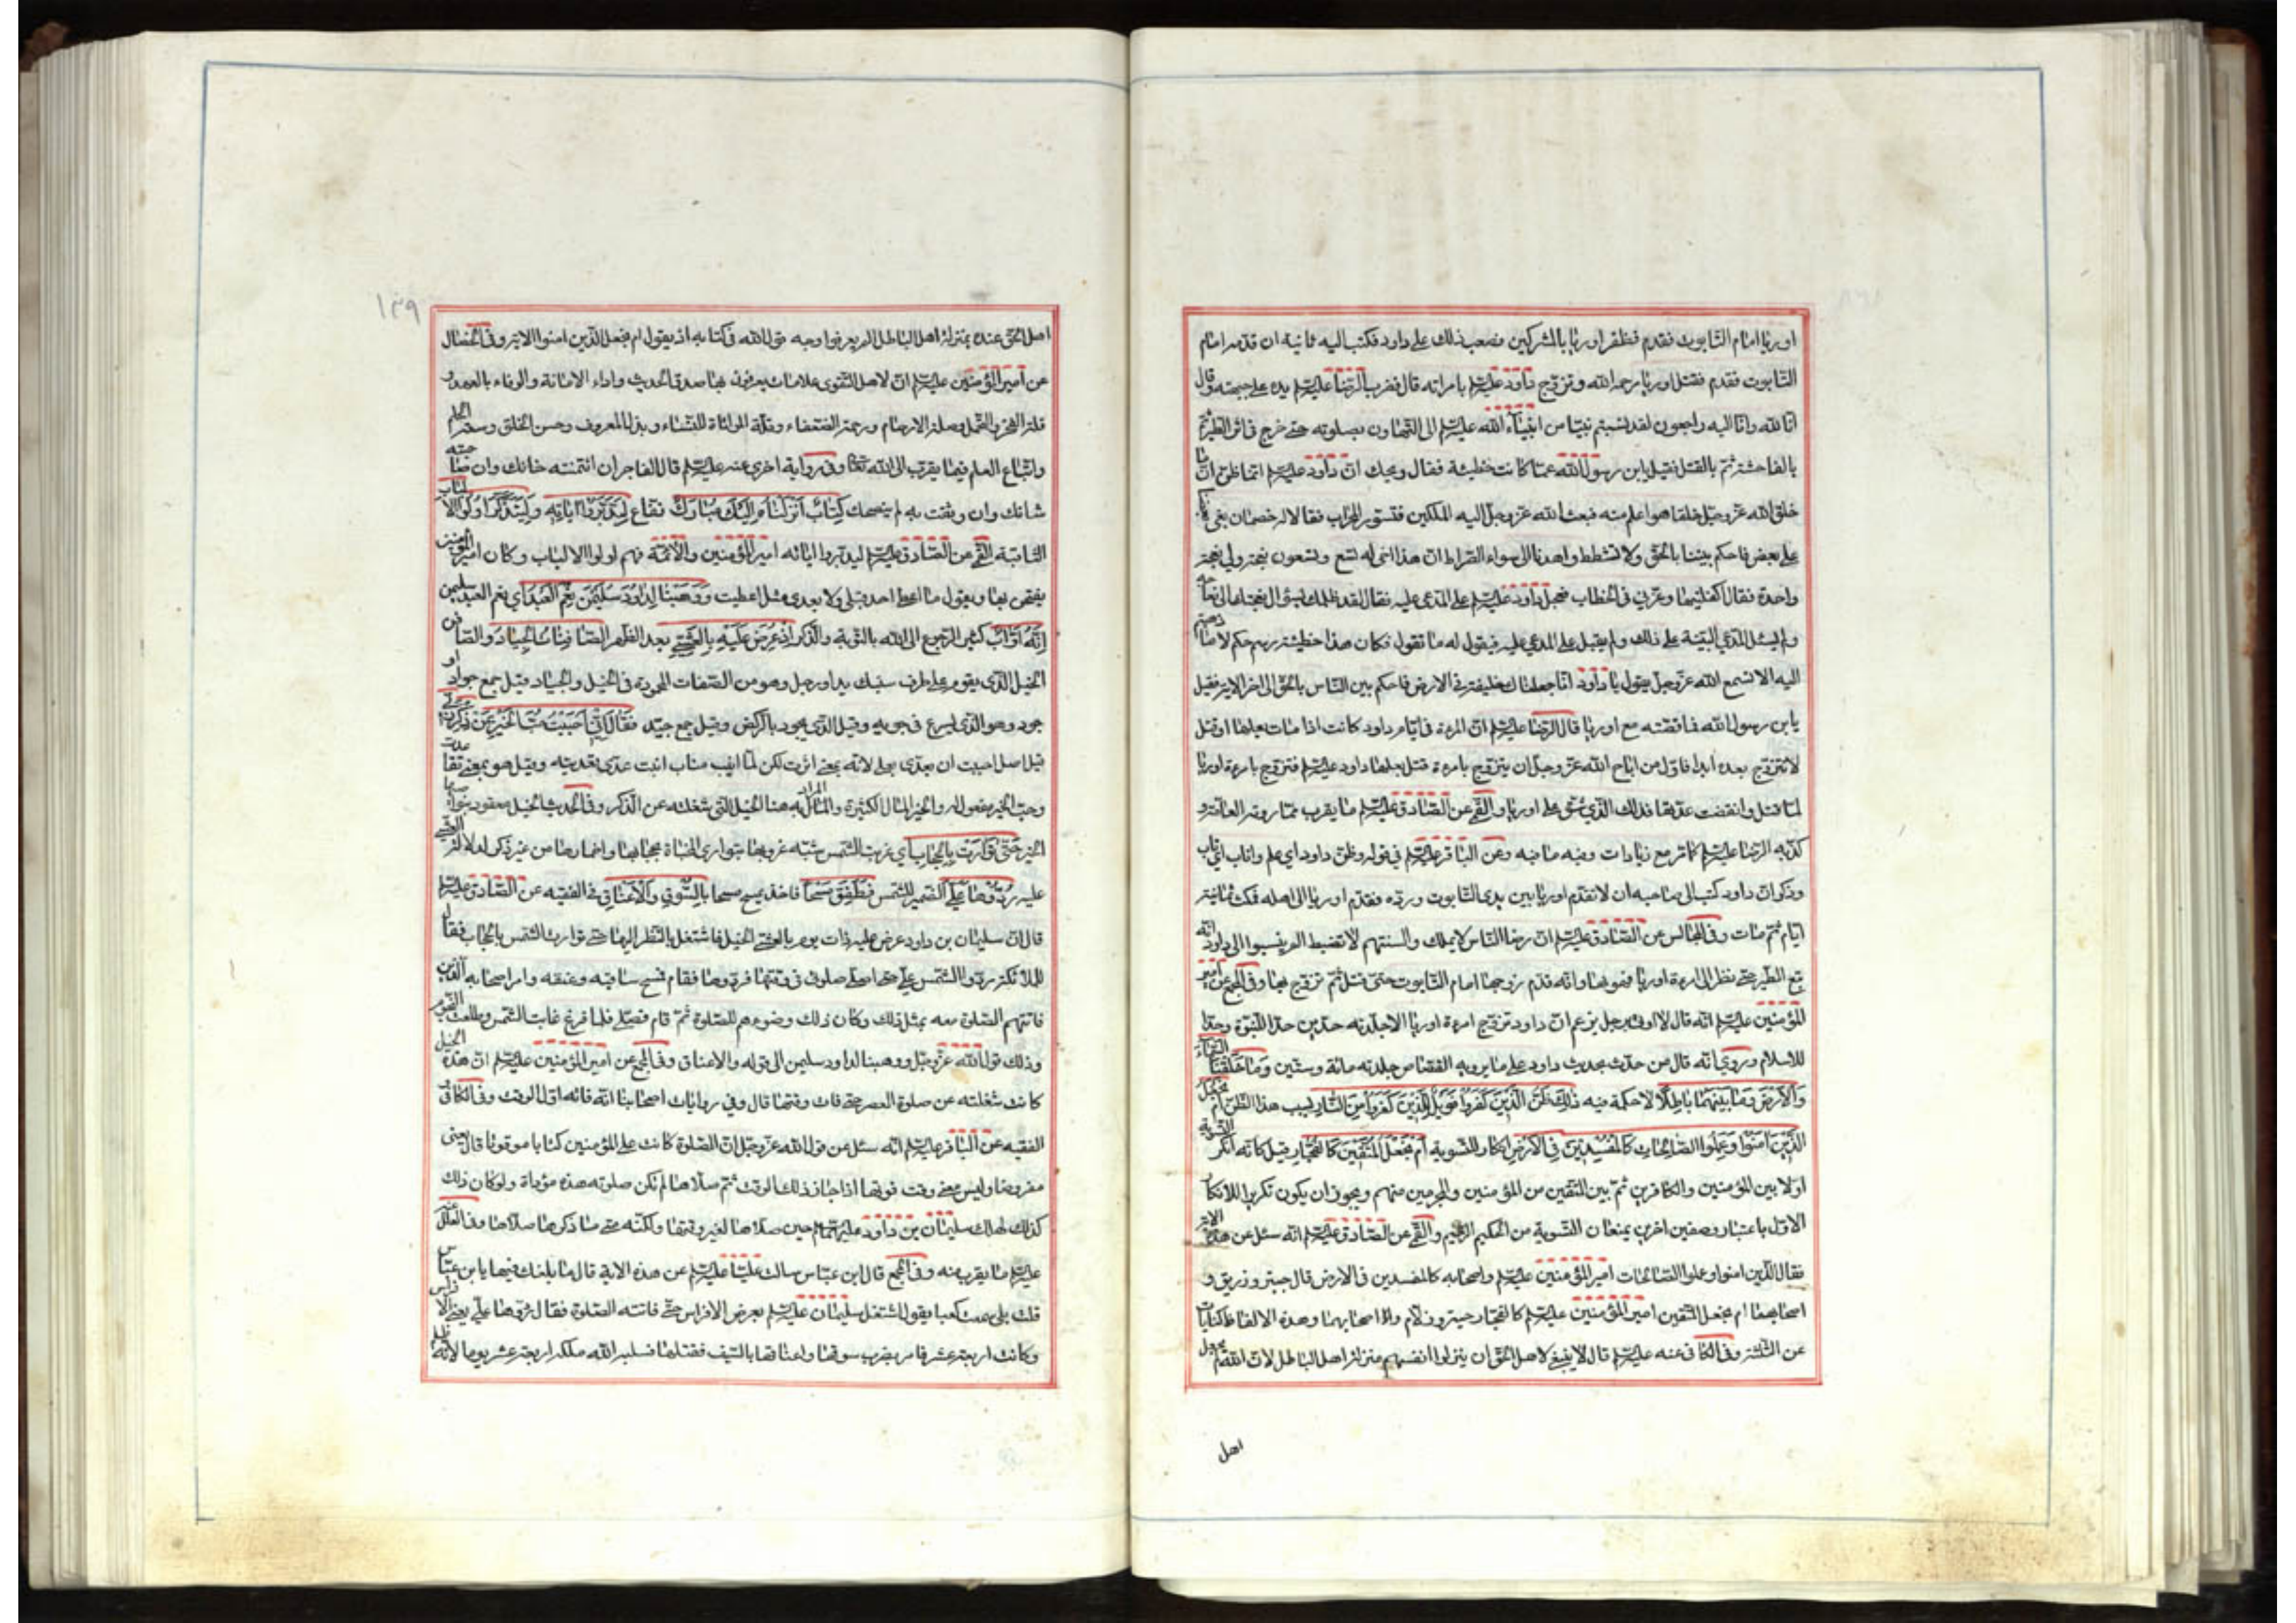 اوريا امام التابوت فقدم فظفر اوريا بالمشركين فصعب ذلك على داود فكتب اليه ثانية ان قدمه امام
التابوت فقدم فقتل اوريا رحمه الله وتزوج داود عليه السلم بامراته قال فضرب الرضا عليه السلم يده على جبهته وقال
انا لله وانا اليه راجعون لقد نسبتم نبيا من انبياء الله عليه السلم الى التهاون بصلوته حتى خرج في اثر الطير ثم
بالفاحشة ثم بالقتل فقيل يابن رسول الله عما كانت خطيئة فقال ويحك ان داود عليه السلم انما ظن ان ما
خلق الله عز وجل خلقا هو اعلم منه فبعث الله عز وجل اليه الملكين فتسورا المحراب فقالا له خصمان بغى
على بعض فاحكم بيننا بالحق ولا تشطط واهدنا الى سواء الصراط ان هذا اخي له تسع وتسعون نعجة ولي نعجة
واحدة فقال اكفلنيها وعزني في الخطاب فعجل داود عليه السلم على المدعى عليه فقال لقد ظلمك بسؤال نعجتك الى نعاجه
ولم يسئل المدعي البينة على ذلك ولم يقبل على المدعى عليه فيقول له ما تقول فكان هذا خطيئة رسم حكم لا ما ذهبتم
اليه الا تسمع الله عز وجل يقول يا داود انا جعلناك خليفة في الارض فاحكم بين الناس بالحق الى اخر الاية فقيل
يابن رسول الله فما قصته مع اوريا قال الرضا عليه السلم ان المرءة في ايام داود كانت اذا مات بعلها او قتل
لا تتزوج بعده ابدا فاول من اباح الله عز وجل ان يتزوج بامرءة قتل بعلها داود عليه السلم فتزوج بامرءة اوريا
لما قتل وانقضت عدتها فذلك الذي شق على اوريا والقمي عن الصادق عليه السلم ما يقرب مما روته العامة و
كذبه الرضا عليه السلم كما مر مع زيادات وفيه ما فيه وعن الباقر عليه السلم في قوله وظن داود اي علم واناب اي تاب
وذكر ان داود كتب الى صاحبه ان لا تقدم اوريا بين يدي التابوت ورده فقدم اوريا الى اهله فمكث ثمانية
ايام ثم مات وفي المجالس عن الصادق عليه السلم ان رضا الناس لا يملك والسنتهم لا تضبط الم ينسبوا الى داود انه
تبع الطير حتى نظر الى امرءة اوريا فهويها وانه قدم زوجها امام التابوت حتى قتل ثم تزوج بها وفي المجمع عن امير
المؤمنين عليه السلم انه قال لا اوتى برجل يزعم ان داود تزوج امرءة اوريا الا جلدته حدين حدا للنبوة وحدا
للاسلام وروي انه قال من حدث بحديث داود على ما يرويه القصاص جلدته مائة وستين وما خلقنا السماء
والارض وما بينهما باطلا لا حكمة فيه ذلك ظن الذين كفروا فويل للذين كفروا من النار بسبب هذا الظن ام نجعل
الذين امنوا وعملوا الصالحات كالمفسدين في الارض انكار للتسوية ام نجعل المتقين كالفجار قيل كانه انكر التسوية
اولا بين المؤمنين والكافرين ثم بين المتقين من المؤمنين والمجرمين منهم ويجوز ان يكون تكريرا للانكار
الاول باعتبار وصفين اخرين يمنعان التسوية من الحكيم الرحيم والقمي عن الصادق عليه السلم انه سئل عن هذه الاية
فقال الذين امنوا وعملوا الصالحات امير المؤمنين عليه السلم واصحابه كالمفسدين في الارض قال حبتر وزريق و
اصحابهما ام نجعل المتقين امير المؤمنين عليه السلم كالفجار حبتر ودلام واصحابهما وهذه الالفاظ كنايات
عن الثلثة وفي الكافي عنه عليه السلم قال لا ينبغي لاهل الحق ان ينزلوا انفسهم منزلة اهل الباطل لان الله لم يجعل
اهل
١٣٩
اهل الحق عنده بمنزلة اهل الباطل الم يعرفوا وجه قول الله في كتابه اذ يقول ام نجعل الذين امنوا الاية وفي الخصال
عن امير المؤمنين عليه السلم ان لاهل التقوى علامات يعرفون بها صدق الحديث واداء الامانة والوفاء بالعهد و
قلة الفخر والتجمل وصلة الارحام ورحمة الضعفاء وقلة المواتاة للنساء وبذل المعروف وحسن الخلق وسعة الحلم
واتباع العلم فيما يقرب الى الله تعالى وفي رواية اخرى عنه عليه السلم قال الفاجر ان ائتمنته خانك وان صاحبته
شانك وان وثقت به لم ينصحك كتاب انزلناه اليك مبارك نفاع ليدبروا اياته وليتذكر اولوا الالباب
الثاقبة القمي عن الصادق عليه السلم ليدبروا اياته امير المؤمنين والائمة فهم اولوا الالباب وكان امير المؤمنين
يفتخر بها ويقول ما اعطي احد قبلي ولا بعدي مثل اعطيت ووهبنا لداود سليمن نعم العبد اي نعم العبد سليمن
انه اواب كثير الرجوع الى الله بالتوبة والذكر اذ عرض عليه بالعشي بعد الظهر الصافنات الجياد والصافن
الخيل الذي يقوم على طرف سنبك يد او رجل وهو من الصفات المحمودة في الخيل والجياد قيل جمع جواد او
جود وهو الذي يسرع في جريه وقيل الذي يجود بالركض وقيل جمع جيد فقال اني احببت حب الخير عن ذكر ربي
قيل اصل احببت ان يعدى بعلى لانه بمعنى اثرت لكن لما انيب مناب انبت عدي تعديته وقيل هو بمعنى تقاعدت
وحب الخير مفعول له والخير المال الكثير والمراد به هنا الخيل التي شغلته عن الذكر وفي الحديث الخيل معقود بنواصيها
الخير حتى توارت بالحجاب اي غربت الشمس شبه غروبها بتواري المخباة بحجابها واضمارها من غير ذكر لدلالة العشي
عليه ردوها علي الضمير للشمس فطفق مسحا فاخذ يمسح مسحا بالسوق والاعناق في الفقيه عن الصادق عليه السلم
قال ان سليمان بن داود عرض عليه ذات يوم بالعشي الخيل فاشتغل بالنظر اليها حتى توارت الشمس بالحجاب فقال
للملائكة ردوا الشمس علي حتى اصلي صلوتي في وقتها فردوها فقام فمسح ساقيه وعنقه وامر اصحابه الذين
فاتتهم الصلوة معه بمثل ذلك وكان ذلك وضوءهم للصلوة ثم قام فصلى فلما فرغ غابت الشمس وطلعت النجوم
وذلك قول الله عز وجل ووهبنا لداود سليمن الى قوله والاعناق وفي المجمع عن امير المؤمنين عليه السلم ان هذه الخيل
كانت شغلته عن صلوة العصر حتى فات وقتها قال وفي روايات اصحابنا انه فاته اول الوقت وفي الكافي
الفقيه عن الباقر عليه السلم انه سئل عن قول الله عز وجل ان الصلوة كانت على المؤمنين كتابا موقوتا قال يعني
مفروضا وليس معنى وقت فوتها اذا جاز ذلك الوقت ثم صلاها لم تكن صلوته هذه مؤداة ولو كان ذلك
كذلك لهلك سليمان بن داود عليهما السلم حين صلاها لغير وقتها ولكنه متى ما ذكرها صلاها وفي العلل
عليه السلم ما يقرب منه وفي المجمع قال ابن عباس سالت عليا عليه السلم عن هذه الاية قال ما بلغك فيها يابن عباس
قلت بلى سمعت كعبا يقول اشتغل سليمان عليه السلم بعرض الافراس حتى فاتته الصلوة فقال ردوها علي يعني الافراس
وكانت اربعة عشر فامر بضرب سوقها واعناقها بالسيف فقتلها فسلبه الله ملكه اربعة عشر يوما لانه ظلم